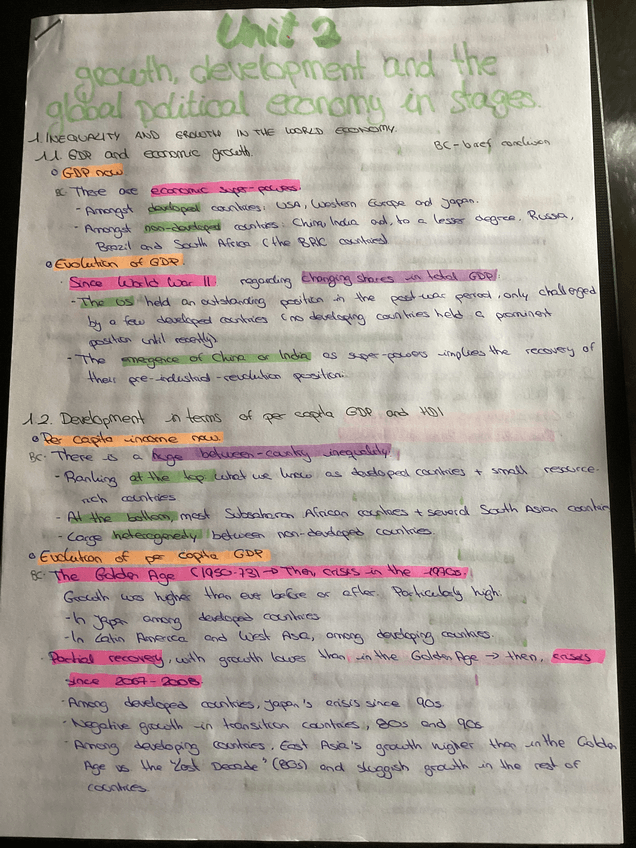 Unit 2
growth, development and the
global political economy in stages.
1. INEQUALITY AND GROWTH IN THE WORLD ECONOMY.
1.1. GDP and economic growth.
BC - brief conclusion
GDP now
BC: There are economic super-powers.
- Amongst developed countries: USA, Western Europe and Japan.
- Amongst non-developed countries: China, India and, to a lesser degree, Russia,
Brazil and South Africa (the BRIC countries)
Evolution of GDP
Since World War II regarding changing shares in total GDP
- The US held an outstanding position in the post-war period, only challenged
by a few developed countries (no developing countries held a prominent
position until recently)
- The emergence of China or India as super-powers implies the recovery of
their pre-industrial-revolution position.
1.2. Development in terms of per capita GDP and HDI
Per capita income now
BC: There is a huge between-country inequality
- Ranking at the top what we know as developed countries + small resource-
rich countries
- At the bottom, most Subsaharan African countries + several South Asian countries
- Large heterogeneity between non-developed countries.
Evolution of per capita GDP
BC: The Golden Age (1950-73) → Then, crisis in the 1970s.
Growth was higher than ever before or after. Particularly high:
- In Japan among developed countries
- In Latin America and West Asia, among developing countries.
Partial recovery, with growth lower than in the Golden Age → then, crisis
since 2007-2008
- Among developed countries, Japan's crisis since 90s
- Negative growth in transition countries, 80s and 90s
- Among developing countries, East Asia's growth higher than in the Golden
Age vs the "Lost Decade" (80s) and sluggish growth in the rest of
countries.